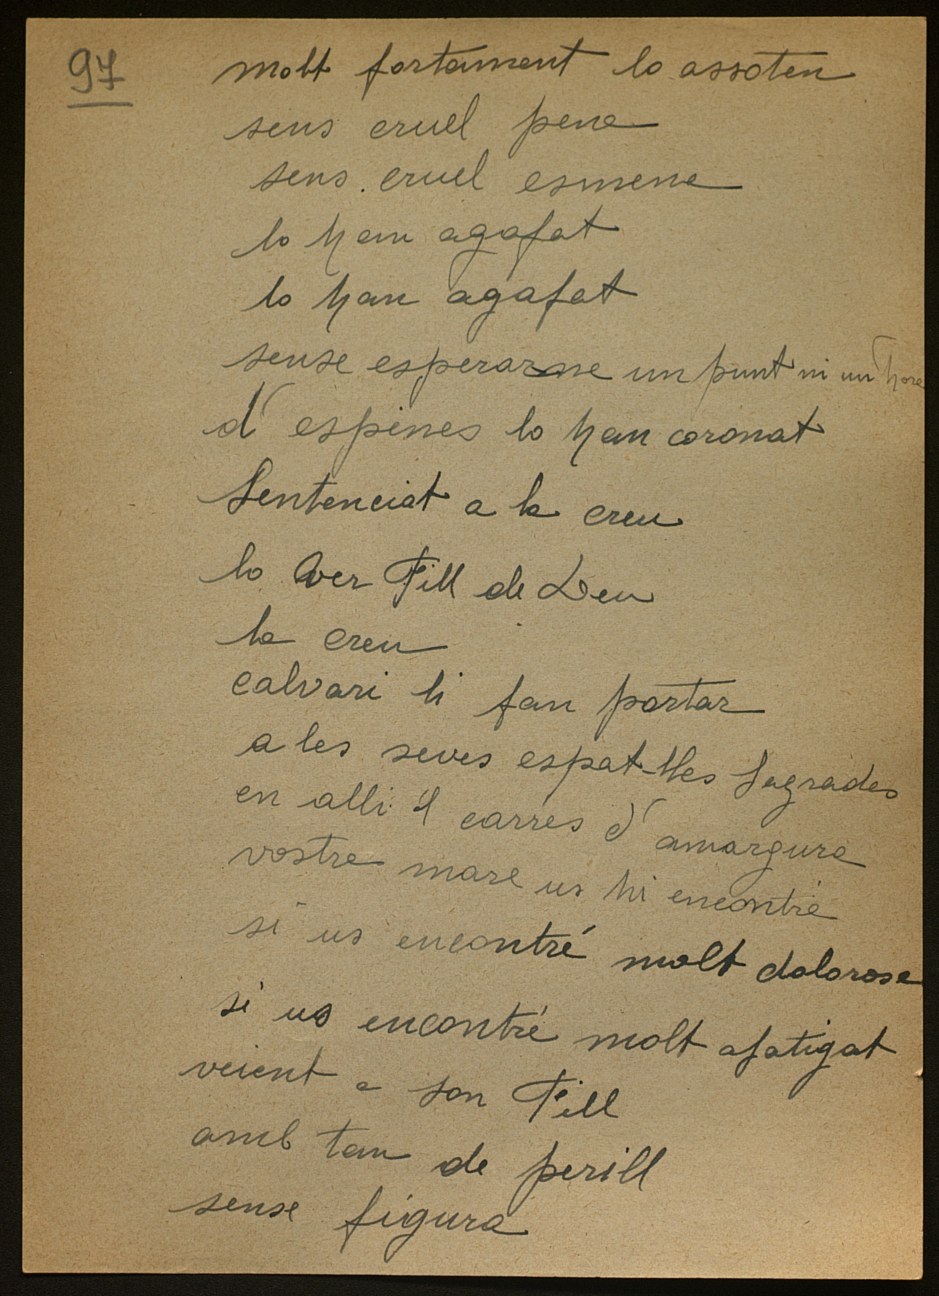 97
molt fortament lo assoten
sens cruel pena
sens cruel esmena
lo han agafat
lo han agafat
sense esperarne un punt ni un hora
d'espines lo han coronat
Sentenciat a la creu
lo ver Fill de Deu
la creu
calvari li fan portar
a les seves espat-lles sagrades
en alli 'l carres d'amargura
vostre mare us hi encontré
si us encontré molt dolorosa
si us encontré molt afatigat
veient a son Fill
amb tan de perill
sense figura